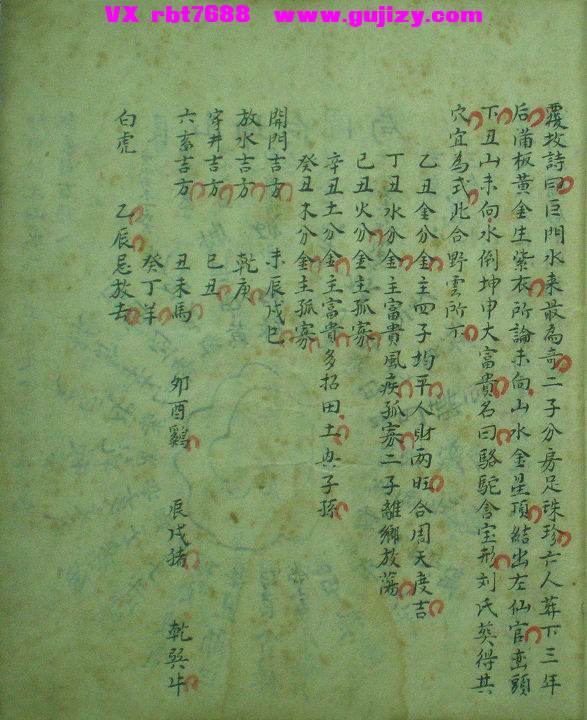 VX rbt7688 www.gujizy.com
覆坟詩曰巨門水来最為奇二子分房足珠珍亡人葬下三年
后蒲板黃金生紫衣所論未向山水金星頂結出左仙官峦頭
下丑山未向水倒坤申大富貴名曰駱駝含宝形刘氏葵得其
穴宜為式此合野雲所下
乙丑金分金主四子均平人財兩旺合周天度吉
丁丑水分金主富貴風疾孤寡二子離鄉放蕩
己丑火分金主孤寡
辛丑土分金主富貴多招田土與子孫
癸丑木分金主孤寡
開門吉方 未辰戌巳
放水吉方 乾庚
穿井吉方 巳丑
六畜吉方 丑未馬 卯酉鷄 辰戌猪 乾巽牛
癸丁羊
白虎 乙辰忌放去